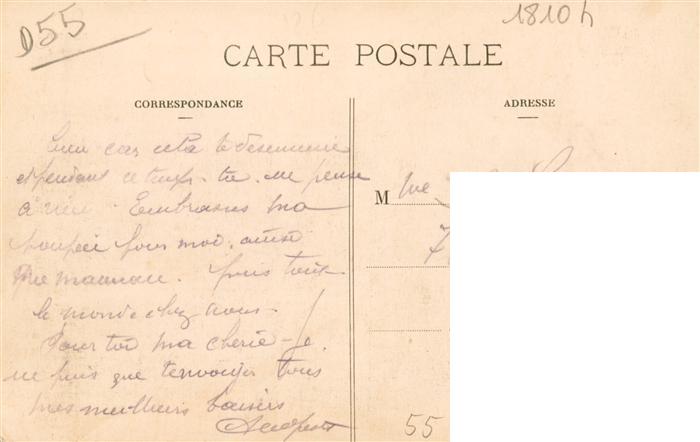 D55
18104
CARTE POSTALE
CORRESPONDANCE
ADRESSE
car cela te désennuie
et pendant ce temps tu ne pense
à rien. Embrasses ma
poupée pour moi, ainsi
que maman. puis tout
le monde chez nous.
Pour toi ma cherie - Je
ne puis que t'envoyer tous
mes meilleurs baisers
M me
7
55